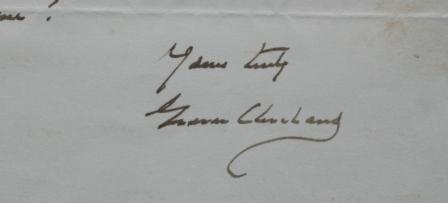 ?
Yours truly
Grover Cleveland